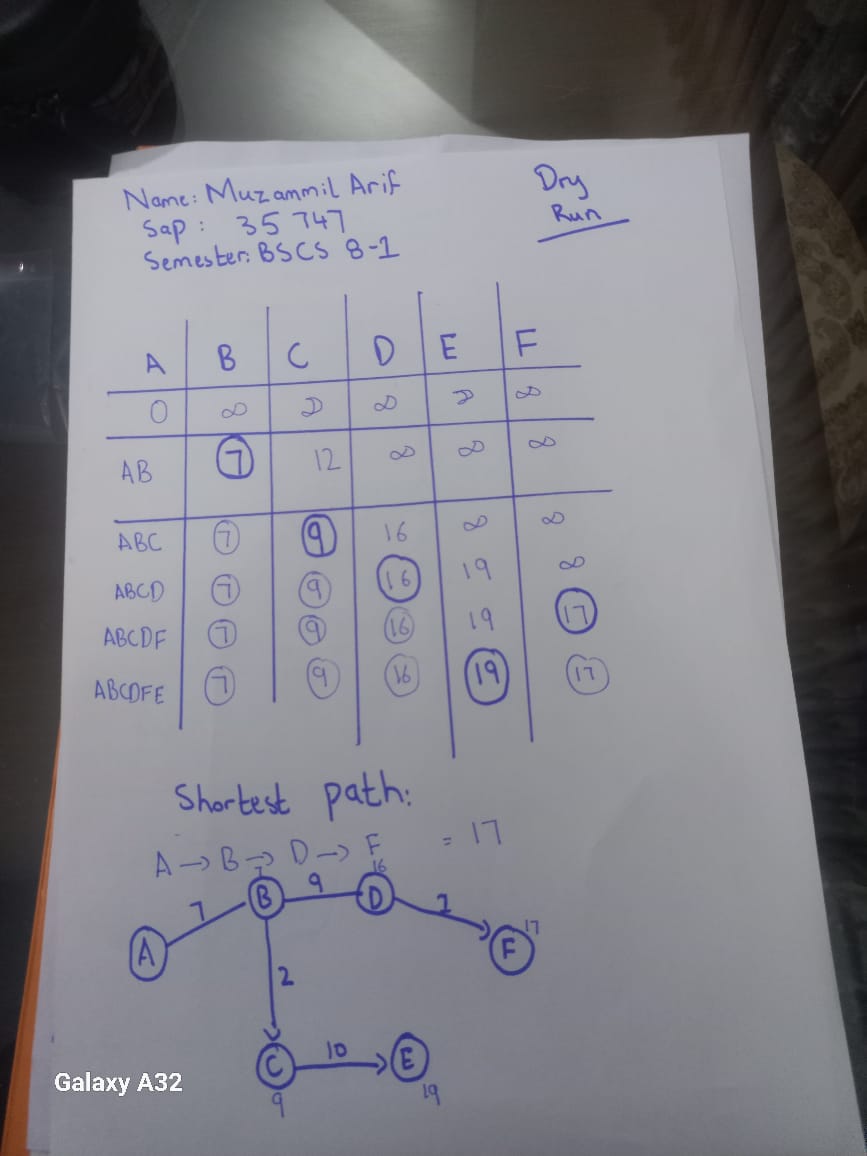 Name: Muzammil Arif
Sap : 35747
Semester: BSCS 8-1
Dry
Run
A B C D E F
0 ∞ ∞ ∞ ∞ ∞
AB 7 12 ∞ ∞ ∞
ABC 7 9 16 ∞ ∞
ABCD 7 9 16 19 ∞
ABCDF 7 9 16 19 17
ABCDFE 7 9 16 19 17
Shortest path:
A → B → D → F = 17
7 16
7 B 9 D 1 17
A F
2
C 10 E
9 19
Galaxy A32